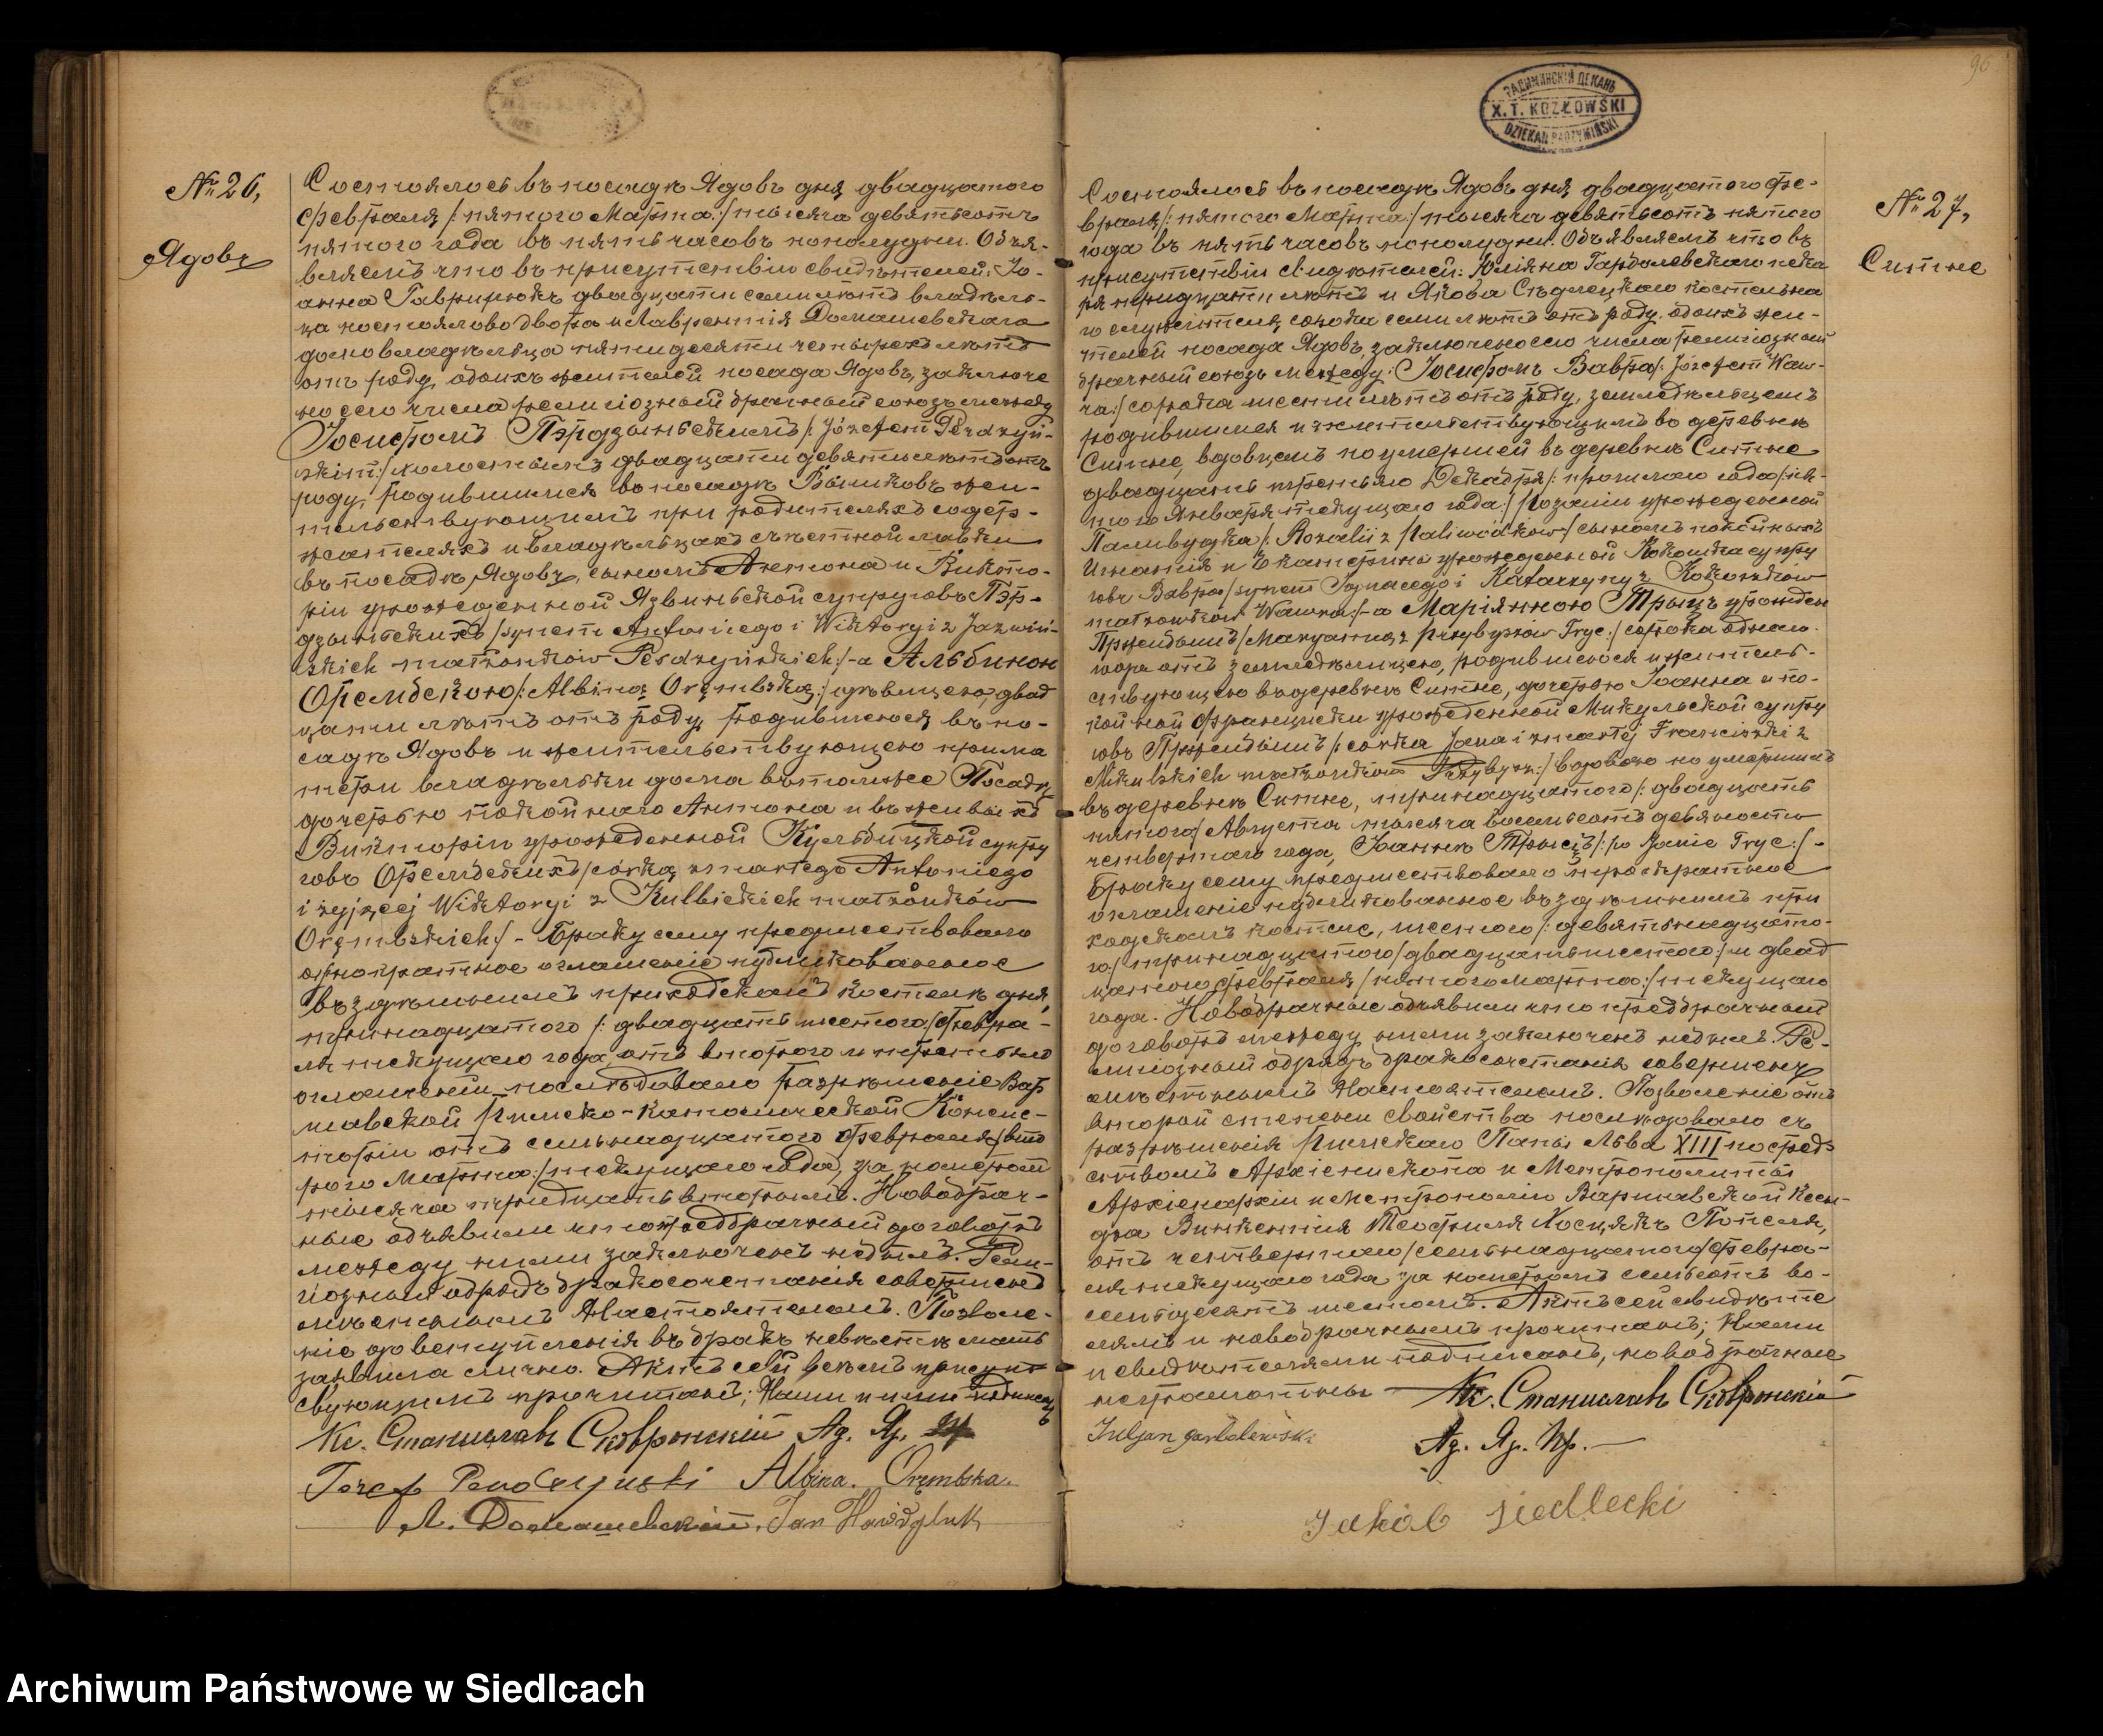 № 26,
Ядовъ
Состоялось въ посадѣ Ядовъ дня двадцатого
февраля /: пятого Марта :/ тысяча девятьсотъ
пятого года въ пять часовъ пополудни. Объя-
вляемъ что въ присутствіи свидѣтелей: Іо-
анна двадцати семи лѣтъ владѣль-
ца постоялово двора и Лаврентія Домашевскаго
домовладѣльца пятидесяти четырехъ лѣтъ
отъ роду, обоихъ жителей посада Ядовъ, заключе
но сего числа религіозный брачный союзъ между
Іосифомъ Пэрдзыньскимъ /: Józefem Perdzyń-
skim :/ холостымъ двадцати девяти лѣтъ отъ
роду, родившимся въ посадѣ Вышковъ жи-
тельствующимъ при родителяхъ содер-
жателяхъ и владѣльцахъ съѣстной лавки
въ посадѣ Ядовъ, сыномъ Антона и Викто-
ріи урожденной Язвиньской супруговъ Пэр-
дзыньскихъ /synem Antoniego i Wiktoryi z Jaźwiń-
skich małżonków Perdzyńskich :/ - а Альбиною
Орембскою /: Albiną Orembską :/ дѣвицею, двад
цати лѣтъ отъ роду, родившеюся въ по-
садѣ Ядовъ и жительствующею при ма
тери владѣльки дома въ томже Посадѣ
дочерью покойнаго Антона и въ живыхъ
Викторіи урожденной Кульбицкой супру
говъ Орембскихъ /córką zmarłego Antoniego
i żyjącej Wiktoryi z Kulbickich małżonków
Orembskich :/ - Браку сему предшествовало
однократное оглашеніе публикованное
въ здѣшнемъ приходскомъ костелѣ дня
тринадцатого /: двадцать шестого :/ Февра-
ля текущаго года, отъ второго и третьяго
оглашеній послѣдовало разрѣшеніе Вар
шавской Римско-Католической Консис-
торіи отъ семьнадцатого Февраля /: вто
рого Марта :/ текущаго года, за номеромъ
тысяча тридцать вторымъ. Новобрач-
ные объявили что предбрачный договоръ
между ними заключенъ небылъ. Рели-
гіозный обрядъ бракосочетанія совершенъ
мѣстнымъ Настоятелемъ. Позволе-
ніе до вступленія въ бракъ невѣстѣ мать
заявила лично. Актъ сей всѣмъ присут
свующимъ прочитанъ; Нами и ими подписанъ
Кс. Станиславъ Сковронскій Ад. Яд.
Józef Perdzyński Albina. Orembska.
Л. Домашевскій, Jan
РАДИМИНСКІЙ ДЕКАНЪ
X. T. KOZŁOWSKI
DZIEKAN RADZYMIŃSKI
96
№ 27,
Ситне
Состоялось въ посадѣ Ядовъ дня двадцатого фе-
враля /: пятого Марта :/ тысяча девятьсотъ пятого
года въ пять часовъ пополудни. Объявляемъ что въ
присутствіи свидѣтелей: Юліяна Гарболевскаго пека
ря тридцати лѣтъ и Якова Сѣдлецкаго костельна
го служителя сорока семи лѣтъ отъ роду, обоихъ жи-
телей посада Ядовъ, заключено сего числа религіозный
брачный союзъ между: Іосифомъ Вавра /: Józefem Waw-
ra :/ сорока шести лѣтъ отъ роду, земледѣльцемъ
родившимся и жительствующимъ во деревнѣ
Ситне, вдовцемъ по умершей въ деревнѣ Ситне
двадцать третьяго Декабря /: прошлаго года / пя-
того Января текущаго года :/ Розаліи урожденной
Паливудка /: Rozalii z Paliwódków / сыномъ покойныхъ
Игнатія и Екатерины урожденной Кокошка супру
говъ Вавра / synem Ignacego i Katarzyny z Kokoszków
małżonków Wawra :/ - а Маріянною Трыцъ урожден
Пржибышъ / Maryanną z Przybyszów Tryc :/ сорока однаго
года отъ земледѣлицею, родившеюся и житель-
ствующею въ деревнѣ Ситне, дочерью Іоанна и по-
койной Францишки урожденной Микульской супру
говъ Пржибышъ /: córką Jana i zmarłej Franciszki z
Mikulskich małżonków Przybysz :/ вдовою по умершемъ
въ деревнѣ Ситне, тринадцатого /: двадцать
пятого :/ Августа тысяча восемьсотъ девяносто
четвертаго года, Іоаннѣ Трыцъ /: po Janie Tryc :/ -
Браку сему предшествовало троекратное
оглашеніе публикованное въ здѣшнемъ при
ходскомъ костеле, шестого /: девятьнадцато-
го :/ тринадцатого / двадцать шестого :/ и двад
цатого февраля / пятого марта :/ текущаго
года. Новобрачные объявили что предбрачный
договоръ между ними заключенъ небылъ. Ре-
лигіозный обрядъ бракосочетанія совершенъ
мѣстнымъ Настоятелемъ. Позволеніе отъ
второй степени свойства послѣдовало съ
разрѣшенія Римскаго Папы Льва XIII посред-
ствомъ Архіепископа и Метрополиты
Архіепархіи и Метрополіи Варшавской Ксен-
дза Винкентія Теофиля Хосцякъ Попеля,
отъ четвертаго / семьнадцатого / февра-
ля текущаго года за номеромъ семьсотъ во-
семьдесятъ шестомъ. Актъ сей свидѣте
лямъ и новобрачнымъ прочитанъ; Нами
и свидѣтелями подписанъ, новобрачные
неграмотны Кс. Станиславъ Сковронскій
Juljan Garbolewski Ад. Яд. Пр.
Jakób Siedlecki
Archiwum Państwowe w Siedlcach